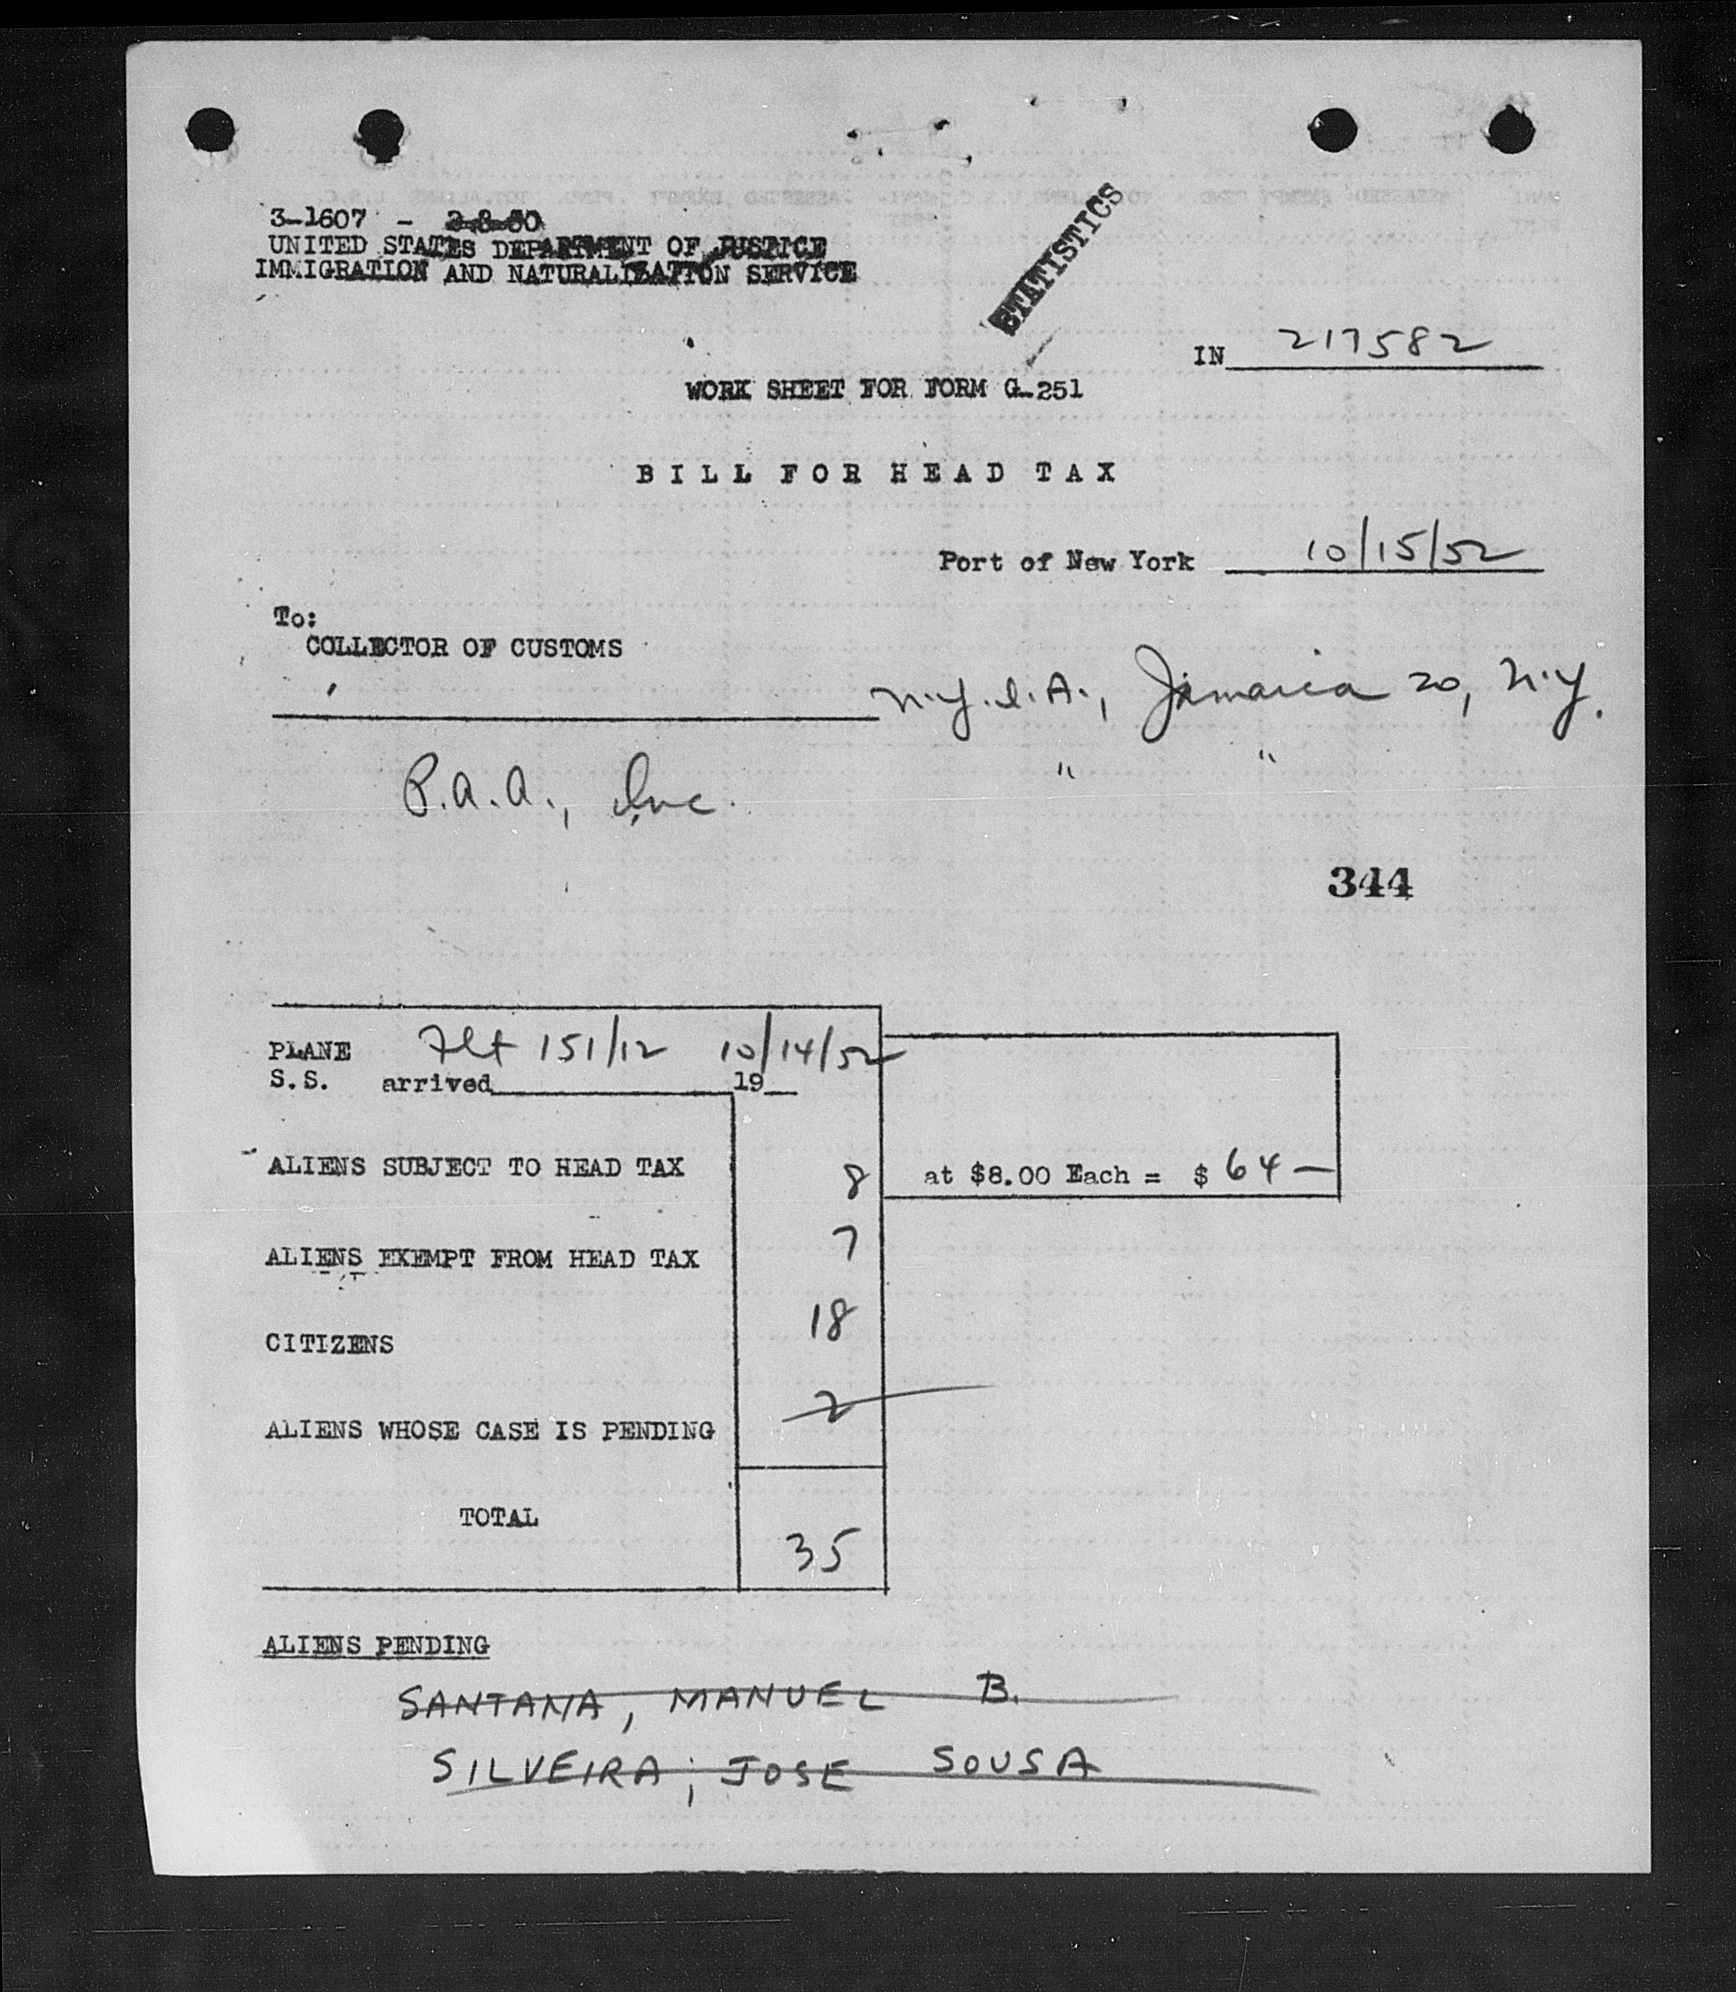 3-1607 - 2-8-50
UNITED STATES DEPARTMENT OF JUSTICE
IMMIGRATION AND NATURALIZATION SERVICE
STATISTICS
IN 217582
WORK SHEET FOR FORM G-251
BILL FOR HEAD TAX
Port of New York 10/15/52
To:
COLLECTOR OF CUSTOMS
N.Y.I.A., Jamaica 20, N.Y.
P.A.A., Inc. " "
344
PLANE Flt 151/12 10/14/52
S.S. arrived 19
ALIENS SUBJECT TO HEAD TAX 8 at $8.00 Each = $ 64 —
ALIENS EXEMPT FROM HEAD TAX 7
CITIZENS 18
ALIENS WHOSE CASE IS PENDING 2
TOTAL 35
ALIENS PENDING
SANTANA, MANUEL B.
SILVEIRA, JOSE SOUSA